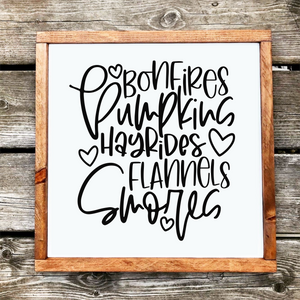 BONFIRES
Pumpkins
HAYRIDES
FLANNELS
Smores